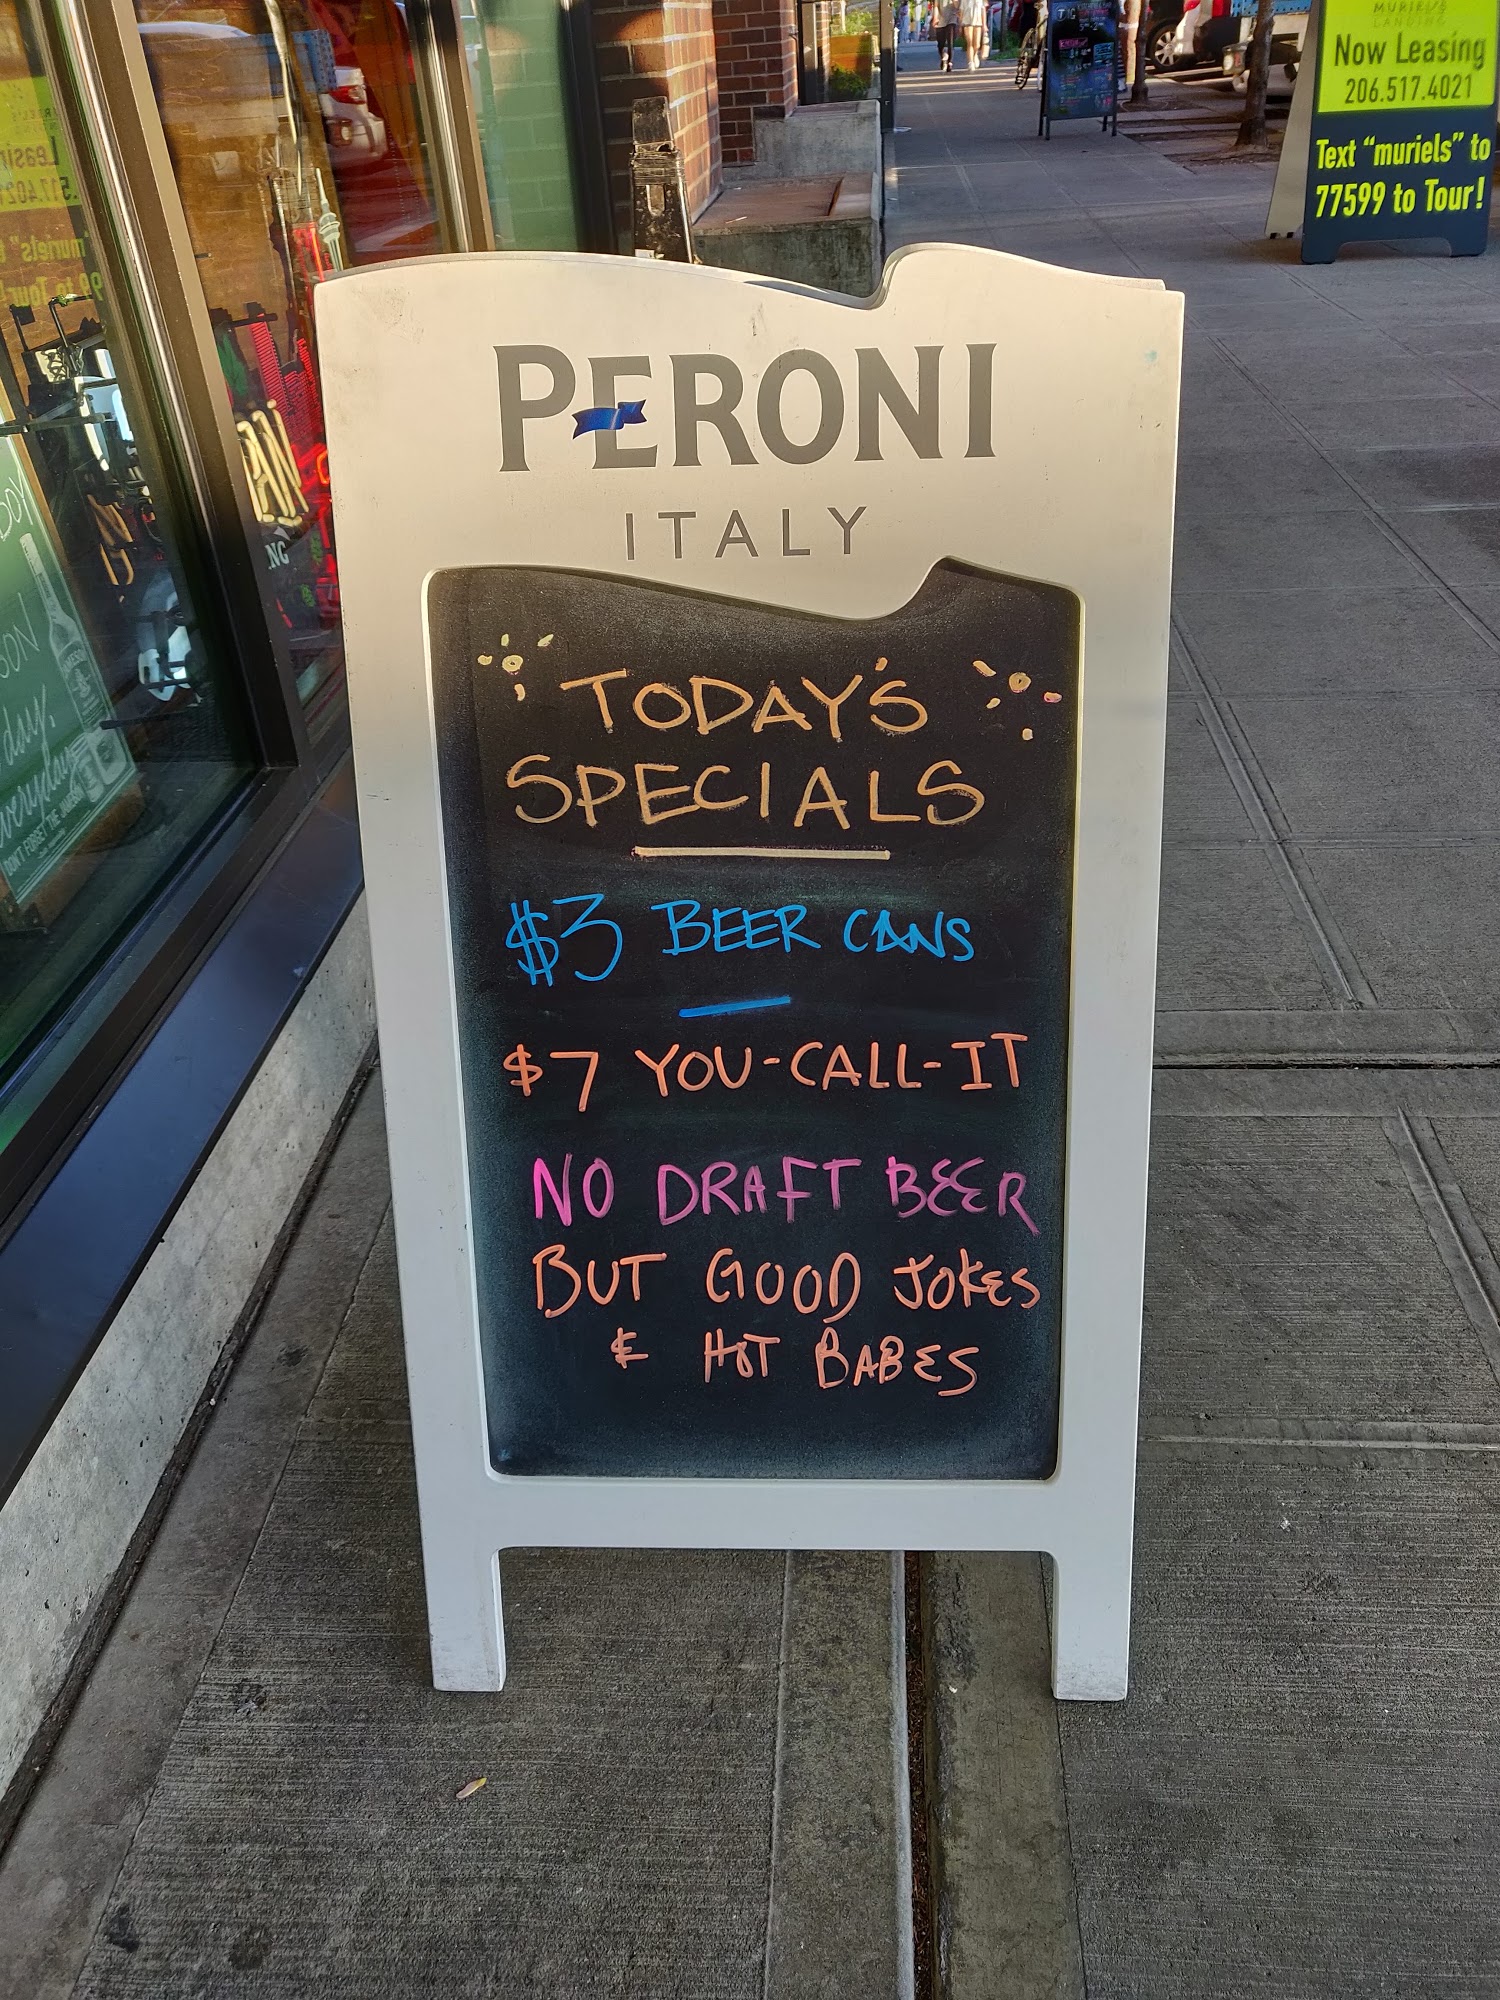 PERONI
ITALY
TODAY'S
SPECIALS
$3 BEER CANS
$7 YOU-CALL-IT
NO DRAFT BEER
BUT GOOD JOKES
& HOT BABES
MURIEL'S
LANDING
Now Leasing
206.517.4021
Text “muriels” to
77599 to Tour!
day.
everyday
DON'T FORGET THE
JAMESON